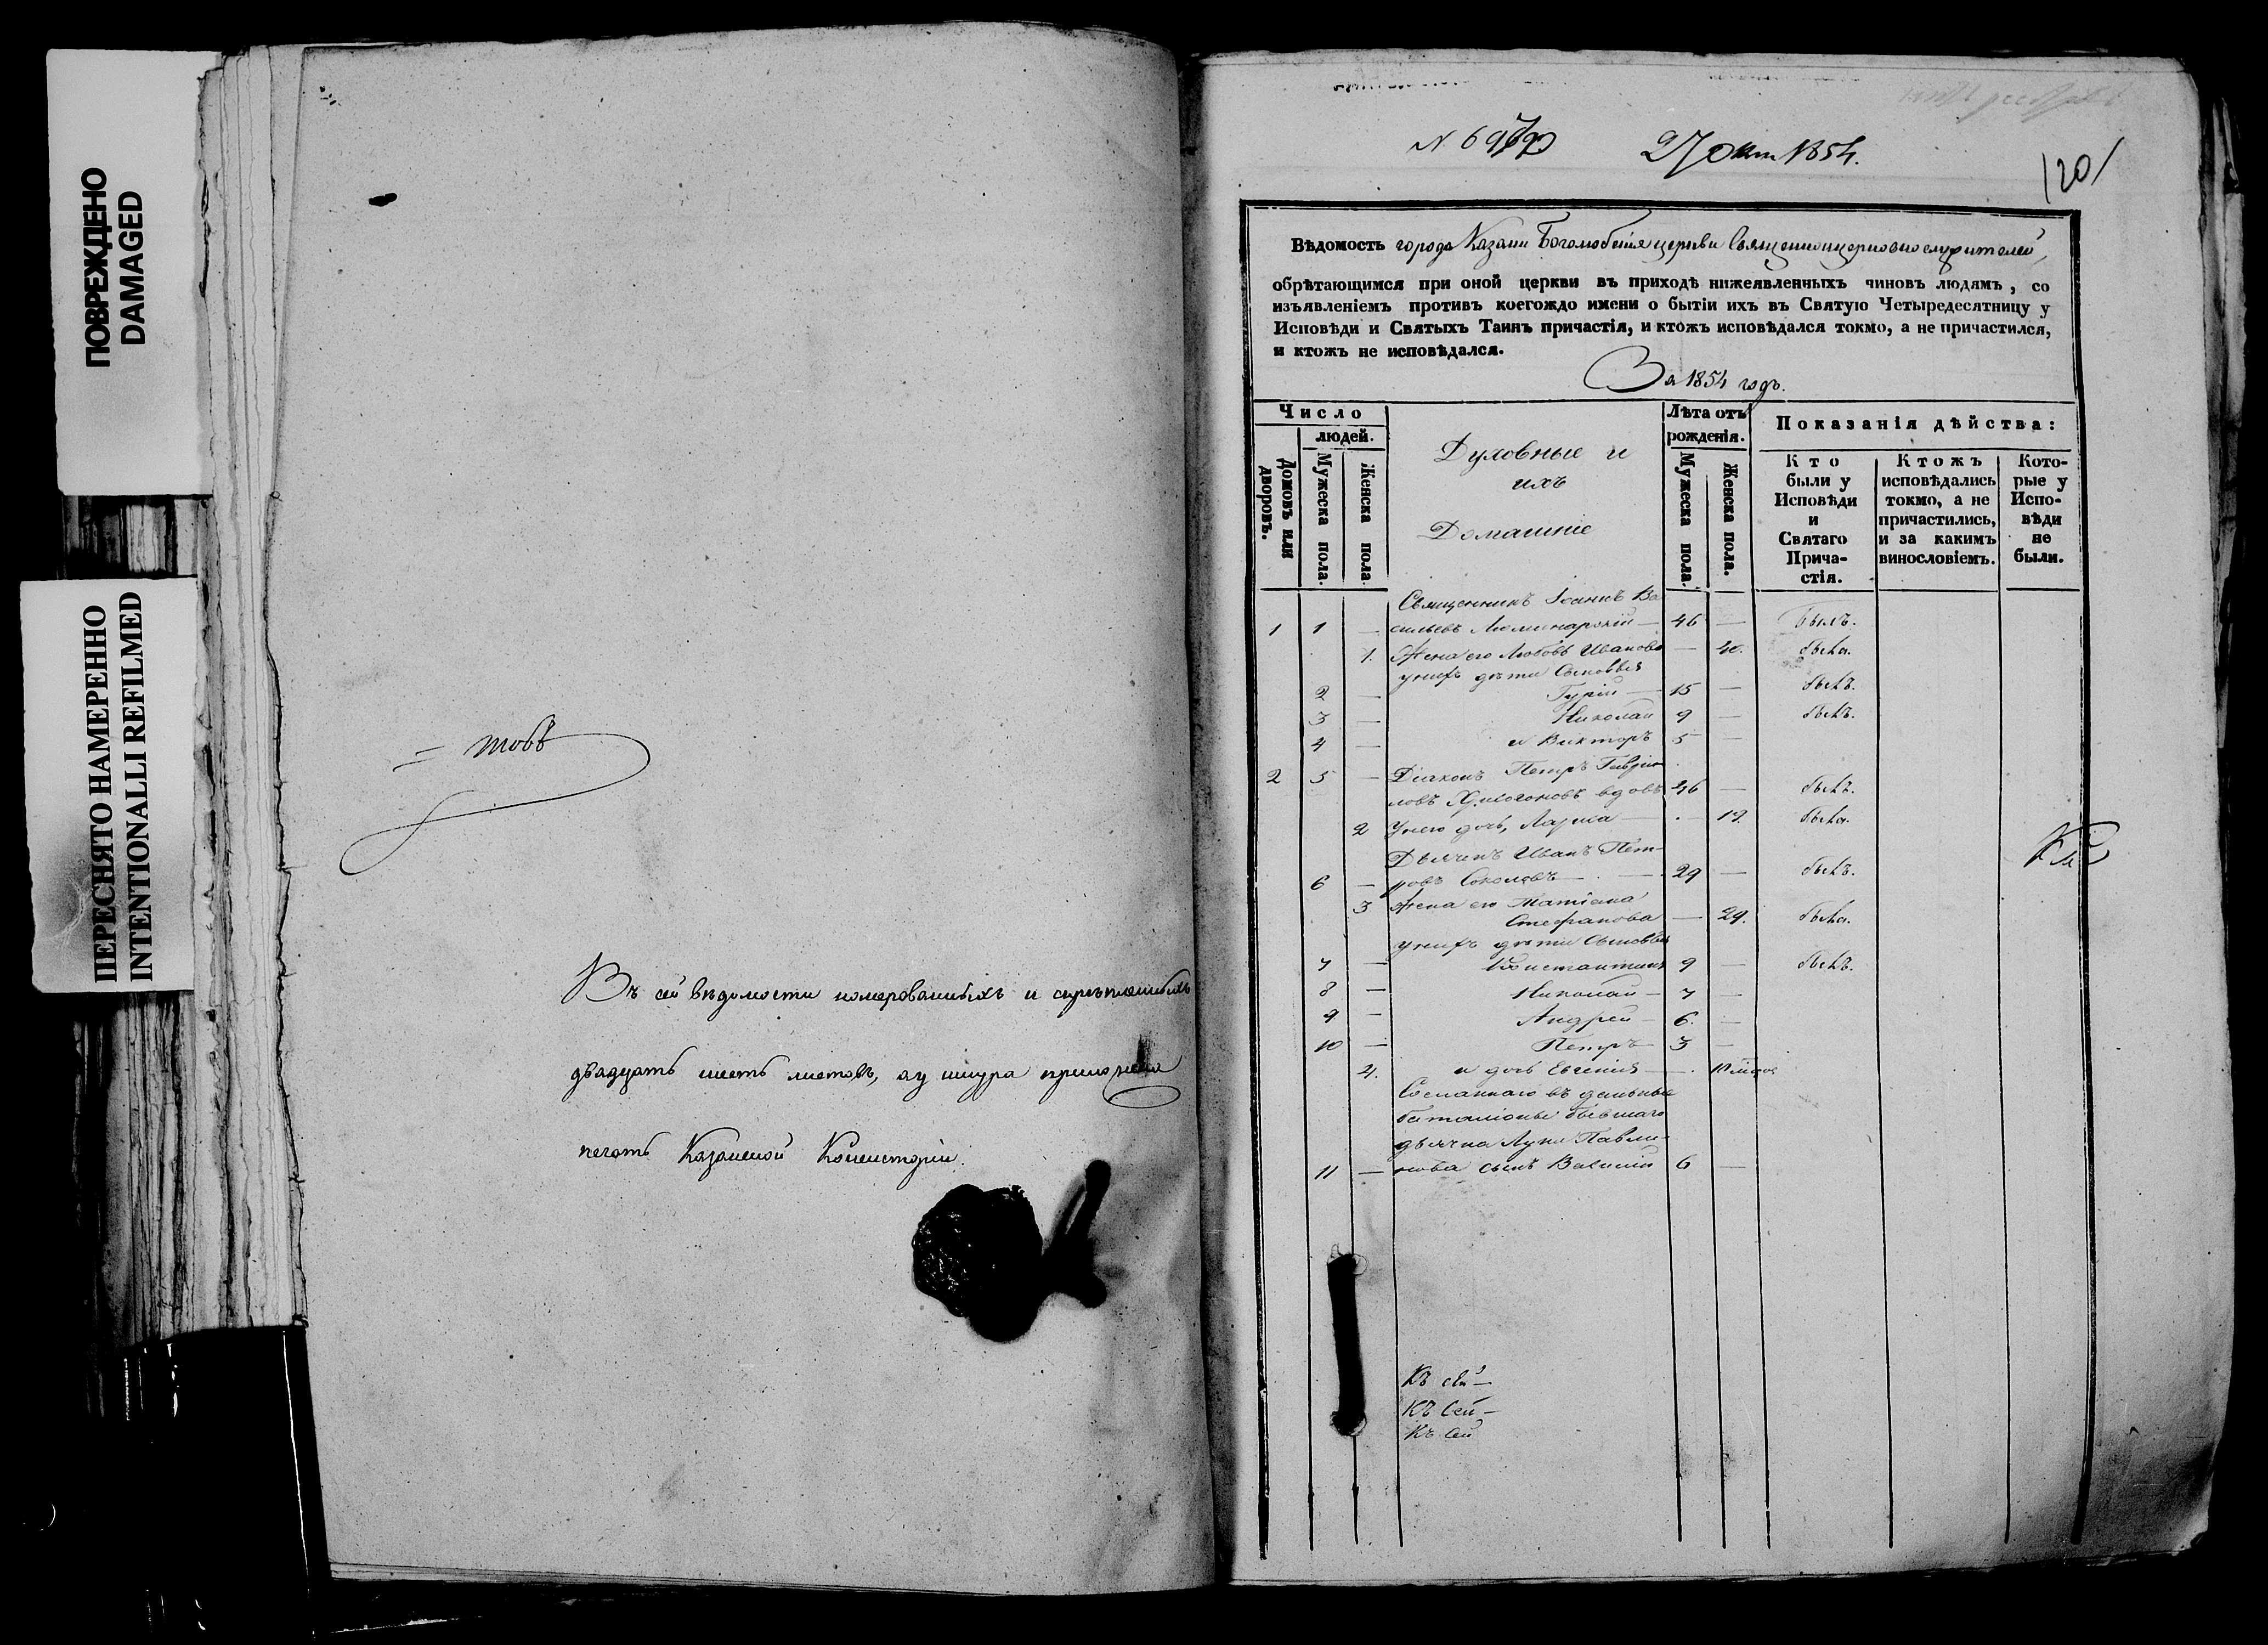 ПОВРЕЖДЕНО
DAMAGED
ПЕРЕСНЯТО НАМЕРЕННО
INTENTIONALLI REFILMED
= товъ
Въ сей вѣдомости номерованныхъ и скрѣпленныхъ
двадцать шесть листовъ, а у шнура приложена
печать Казанской Консисторіи.
27 Окт 1854.
120
Вѣдомость города Казани Боголюбскія церкви Священноцерковнослужителей,
обрѣтающимся при оной церкви въ приходѣ нижеявленныхъ чиновъ людямъ, со
изъявленіемъ противъ коегождо имени о бытіи ихъ въ Святую Четыредесятницу у
Исповѣди и Святыхъ Таинъ причастія, и ктожъ исповѣдался токмо, а не причастился,
и ктожъ не исповѣдался.
За 1854 годъ.
Число
людей.
Домовъ или дворовъ.
Мужеска пола.
Женска пола
Духовные и
ихъ
Домашніе
Лѣта отъ
рожденія.
Мужеска пола.
Женска пола.
Показанія дѣйства:
Кто
были у
Исповѣди
и
Святаго
Прича-
стія.
Ктожъ
исповѣдались
токмо, а не
причастились,
и за какимъ
винословіемъ.
Кото-
рые у
Испо-
вѣди
не
были.
Священникъ Іоаннъ Ва
1 1 — сильевъ Люминарскій — 46 — былъ.
1. Жена его Любовь Иванова — 40. была.
у нихъ дѣти Сыновья
2 — Гурій — 15 — былъ.
3 — Николай 9 — былъ.
4 — и Викторъ 5 —
2 5 — Діаконъ Петръ Гаврі
ловъ вдовъ 46 — былъ.
2 У него дочь, Лариса — . — 19. была.
Дьячекъ Иванъ Пет-
6 — ровъ Соколовъ — . — 29 — былъ.
3 Жена его Татіана
Стефанова — 29. была.
у нихъ дѣти Сыновья
7 — Константинъ 9 — былъ.
8 — Николай — 7 —
9 — Андрей — 6. —
10 — Петръ — 3 —
4. и дочь Евгенія — .
Сосланнаго въ дальные
баталіоны бывшаго
дьячка Луки Павли-
11 — нова сынъ Василій 6 —
Къ сей —
Къ сей —
Къ сей